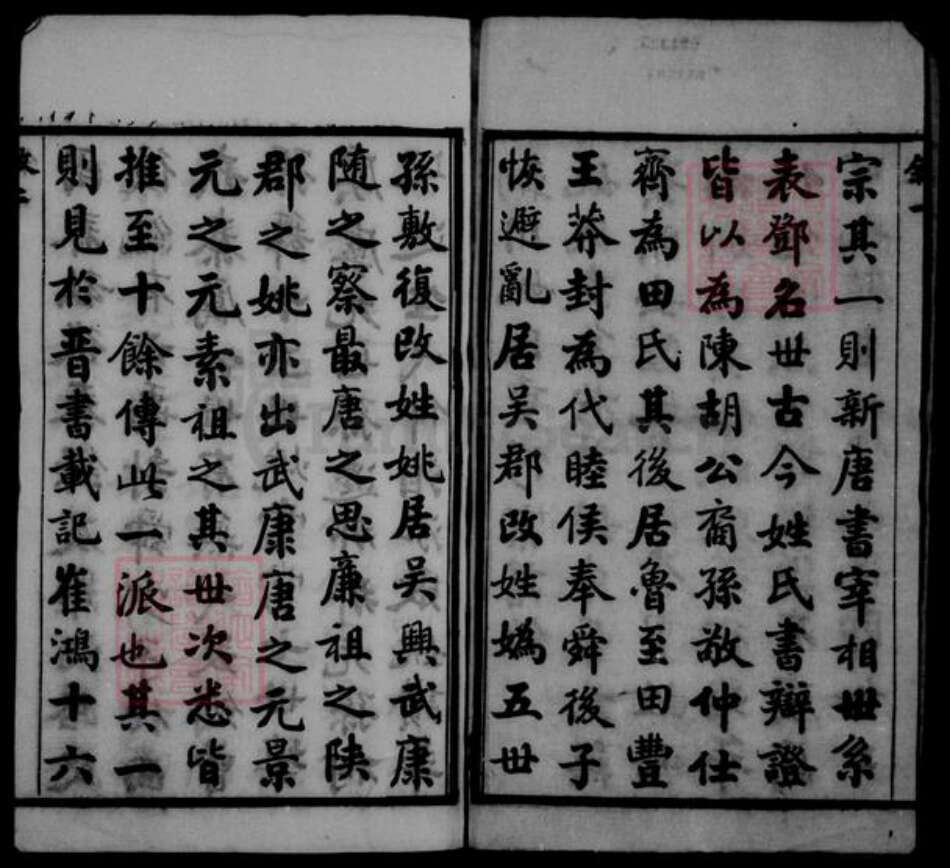 宗其一則新唐書宰相世系
表鄧名世古今姓氏書辯證
皆以為陳胡公裔孫敬仲仕
齊為田氏其後居魯至田豐
王莽封為代睦侯奉舜後子
恢避亂居吳郡改姓媯五世
孫敷復改姓姚居吳興武康
隨之察最唐之思廉祖之陝
郡之姚亦出武康唐之元景
元之元素祖之其世次悉皆
推至十餘傳此一派也其一
則見於晉書載記崔鴻十六